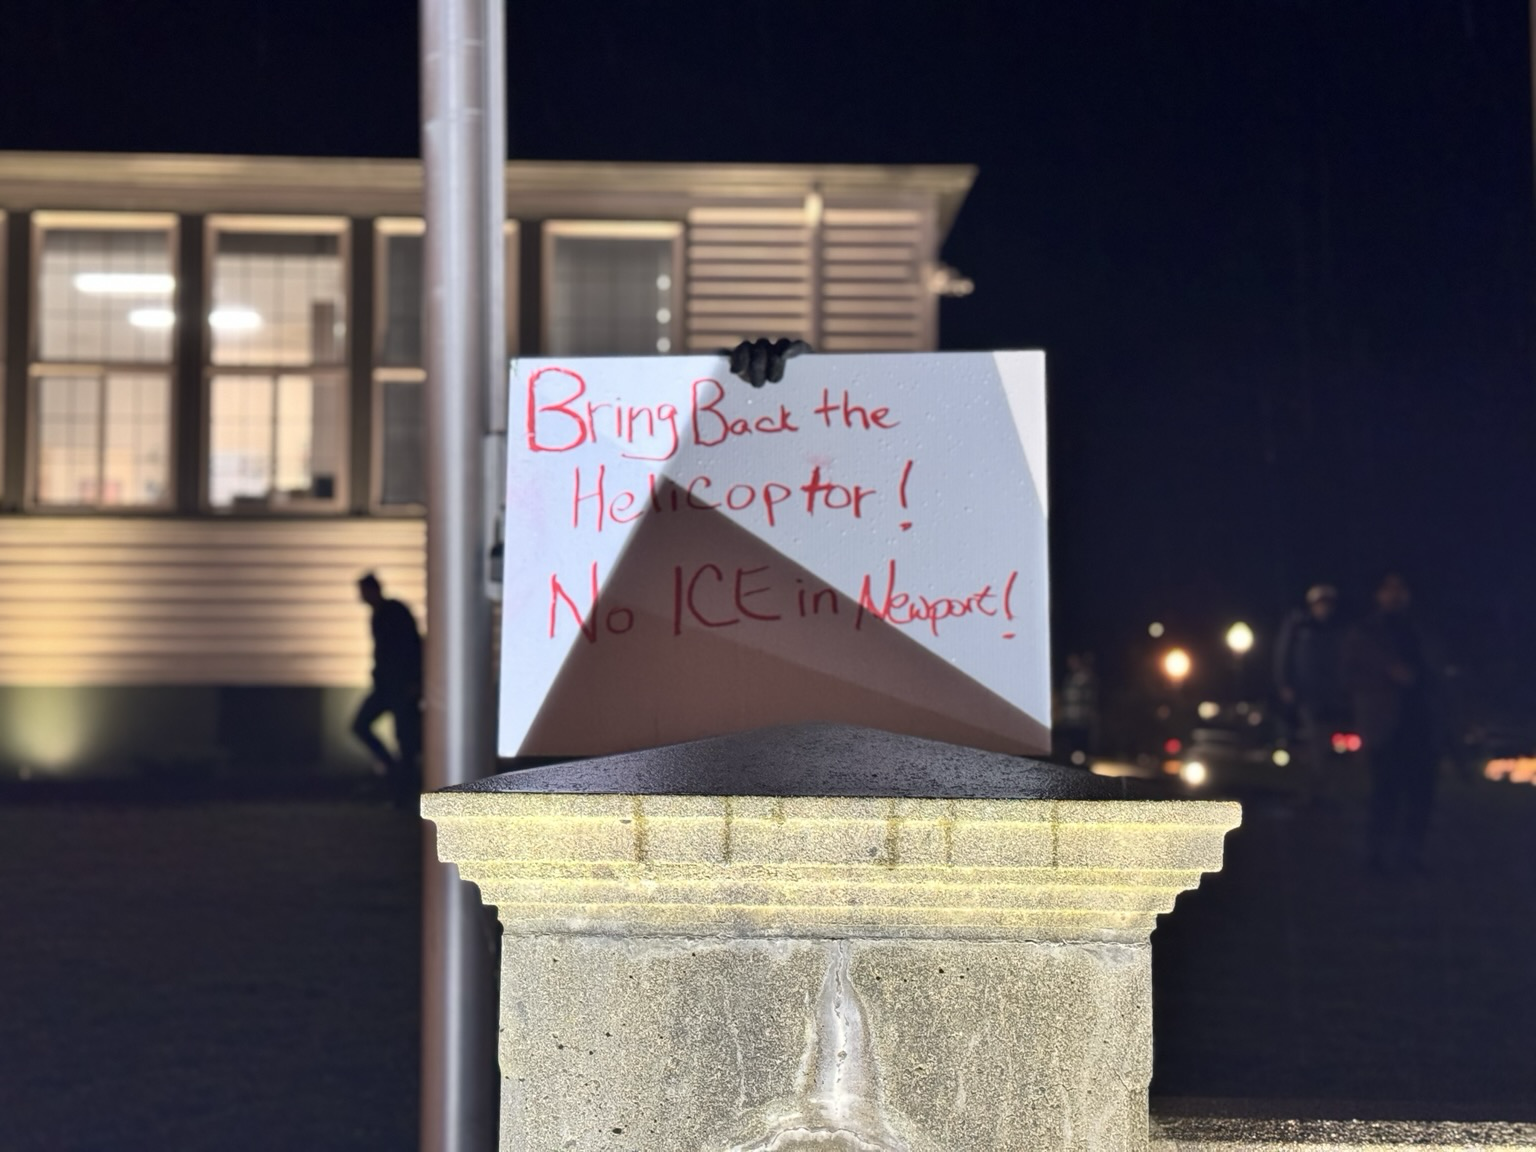 Bring Back the
Helicoptor!
No ICE in Newport!